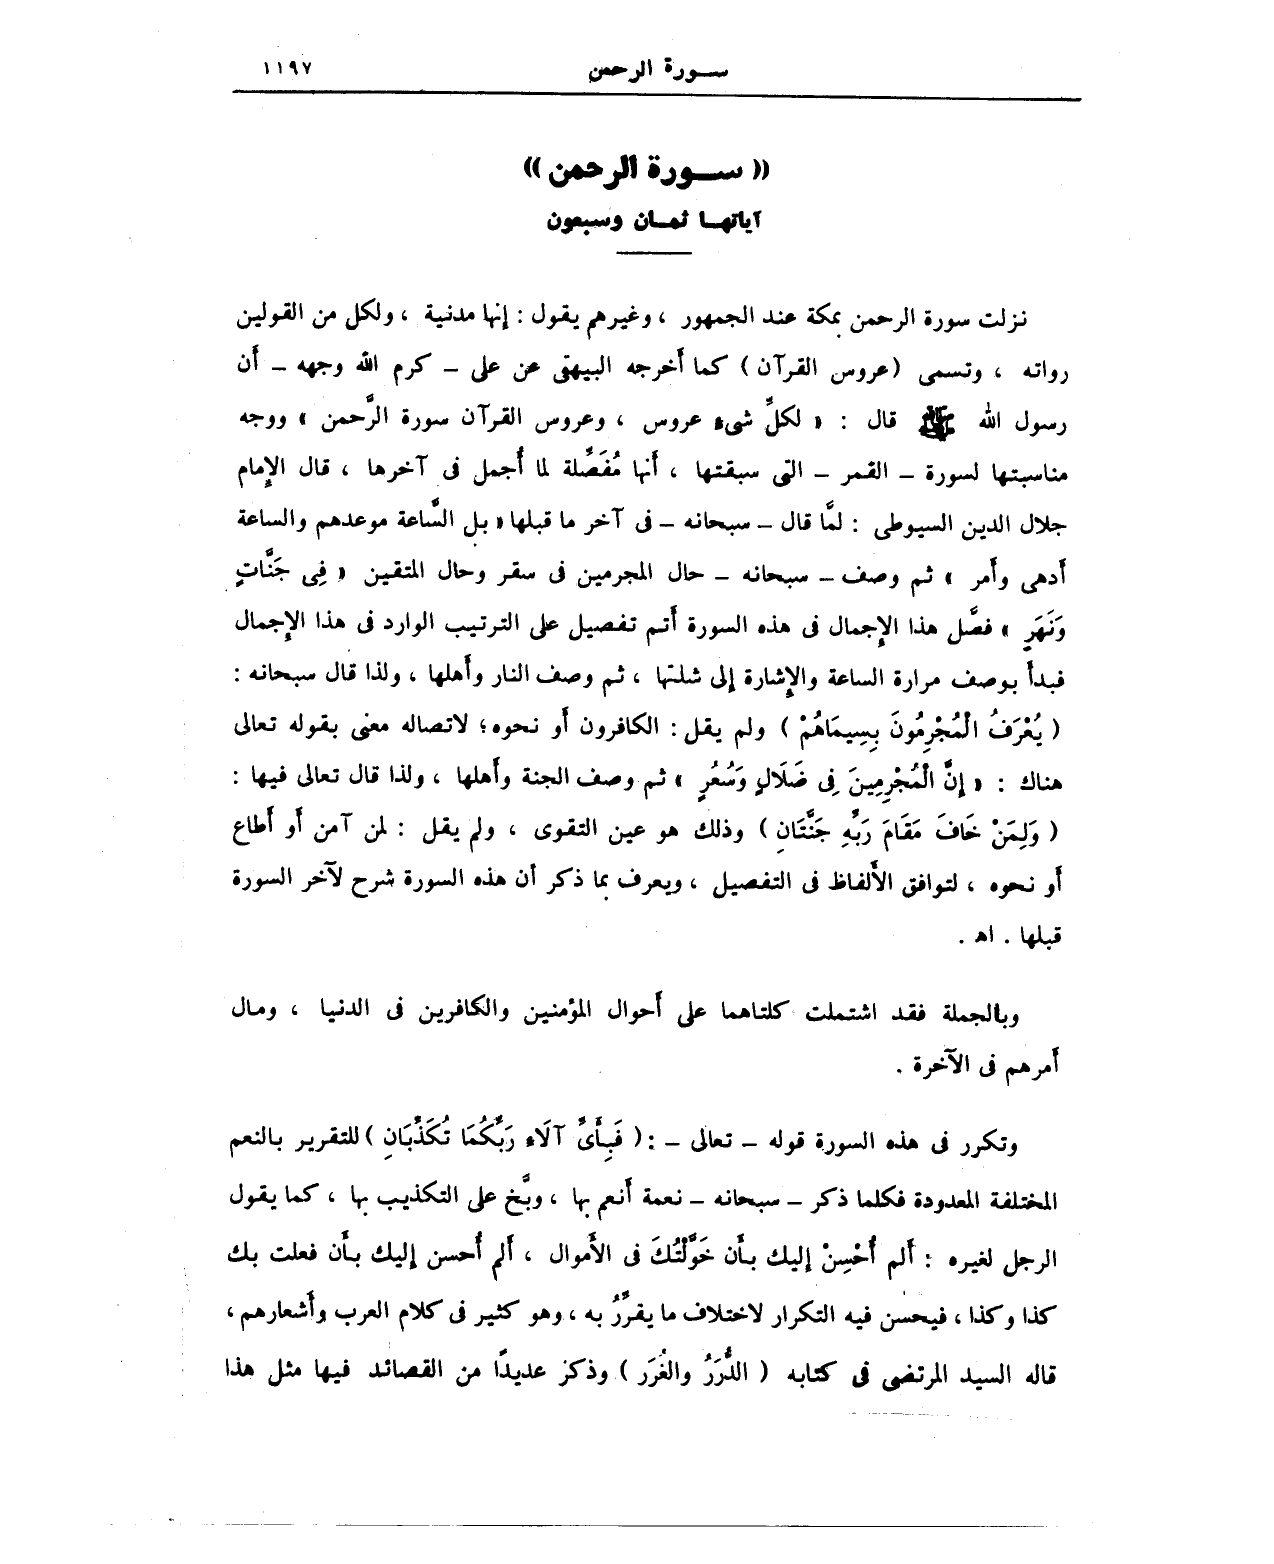 سورة الرحمن ١١٩٧
(( سورة الرحمن ))
آياتها ثمان وسبعون
نزلت سورة الرحمن بمكة عند الجمهور ، وغيرهم يقول : إنها مدنية ، ولكل من القولين
رواته ، وتسمى (عروس القرآن) كما أخرجه البيهقى عن على – كرم الله وجهه – أن
رسول الله ﷺ قال : « لكلِّ شىء عروس ، وعروس القرآن سورة الرَّحمن » ووجه
مناسبتها لسورة – القمر – التى سبقتها ، أنها مُفَصَّلة لما أُجمل فى آخرها ، قال الإمام
جلال الدين السيوطى : لمَّا قال – سبحانه – فى آخر ما قبلها « بل السَّاعة موعدهم والساعة
أدهى وأمر » ثم وصف – سبحانه – حال المجرمين فى سقر وحال المتقين « فِى جَنَّاتٍ
وَنَهَرٍ » فصَّل هذا الإجمال فى هذه السورة أتم تفصيل على الترتيب الوارد فى هذا الإجمال
فبدأ بوصف مرارة الساعة والإشارة إلى شدتها ، ثم وصف النار وأهلها ، ولذا قال سبحانه :
( يُعْرَفُ الْمُجْرِمُونَ بِسِيمَاهُمْ ) ولم يقل : الكافرون أو نحوه؛ لاتصاله معنى بقوله تعالى
هناك : « إِنَّ الْمُجْرِمِينَ فِى ضَلَالٍ وَسُعُرٍ » ثم وصف الجنة وأهلها ، ولذا قال تعالى فيها :
( وَلِمَنْ خَافَ مَقَامَ رَبِّهِ جَنَّتَانِ ) وذلك هو عين التقوى ، ولم يقل : لمن آمن أو أطاع
أو نحوه ، لتوافق الألفاظ فى التفصيل ، ويعرف بما ذكر أن هذه السورة شرح لآخر السورة
قبلها . اهـ .
وبالجملة فقد اشتملت كلتاهما على أحوال المؤمنين والكافرين فى الدنيا ، ومال
أمرهم فى الآخرة .
وتكرر فى هذه السورة قوله – تعالى – : ( فَبِأَىِّ آلَاء رَبِّكُمَا تُكَذِّبَانِ ) للتقرير بالنعم
المختلفة المعدودة فكلما ذكر – سبحانه – نعمة أنعم بها ، وبَّخ على التكذيب بها ، كما يقول
الرجل لغيره : ألم أُحْسِنْ إليك بأن خَوَّلْتُكَ فى الأموال ، ألم أُحسن إليك بأن فعلت بك
كذا وكذا ، فيحسن فيه التكرار لاختلاف ما يقرَّرُ به ، وهو كثير فى كلام العرب وأشعارهم ،
قاله السيد المرتضى فى كتابه ( الدُّرَرُ والغُرَر ) وذكر عديدًا من القصائد فيها مثل هذا